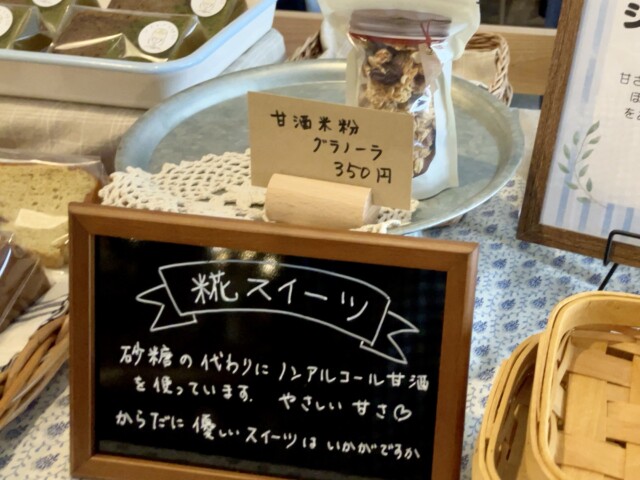 甘酒米粉
グラノーラ
350円
糀スイーツ
砂糖の代わりにノンアルコール甘酒
を使っています。やさしい甘さ♡
からだに優しいスイーツはいかがですか
甘さ